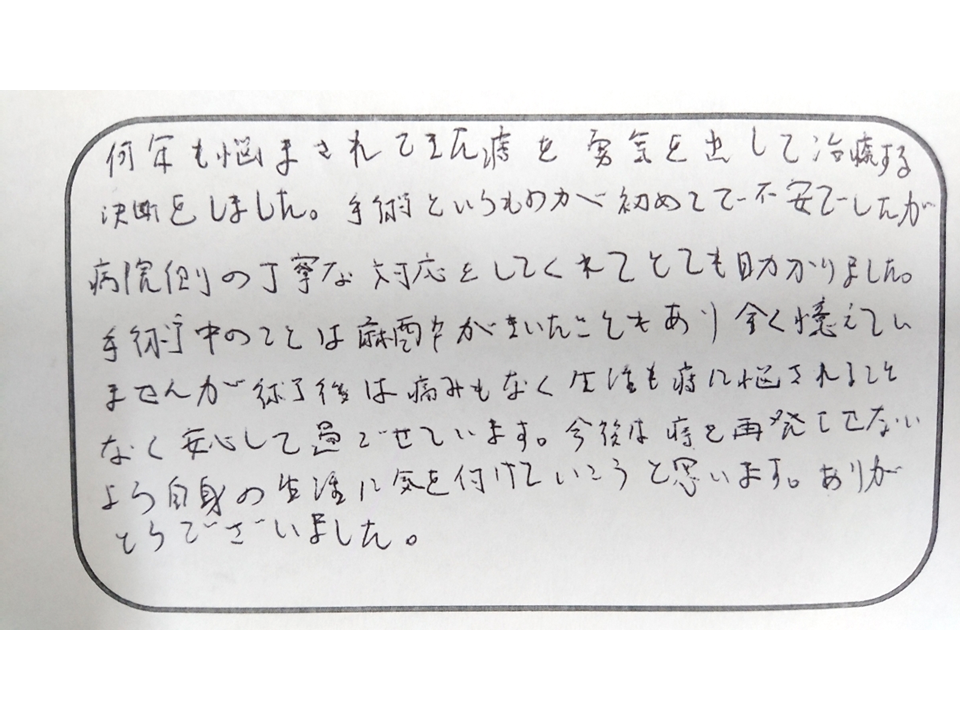 何年も悩まされてきた痔を勇気を出して治療する
決断をしました。手術というものが初めてで不安でしたが
病院側の丁寧な対応をしてくれてとても助かりました。
手術中のことは麻酔がきいたこともあり全く憶えてい
ませんが術後は痛みもなく生活も痔に悩されること
なく安心して過ごせています。今後は痔を再発させない
よう自身の生活に気を付けていこうと思います。ありが
とうございました。